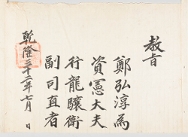 教旨
鄭弘淳為
資憲大夫
行龍驤衛
副司直者
乾隆三十二年七月 日